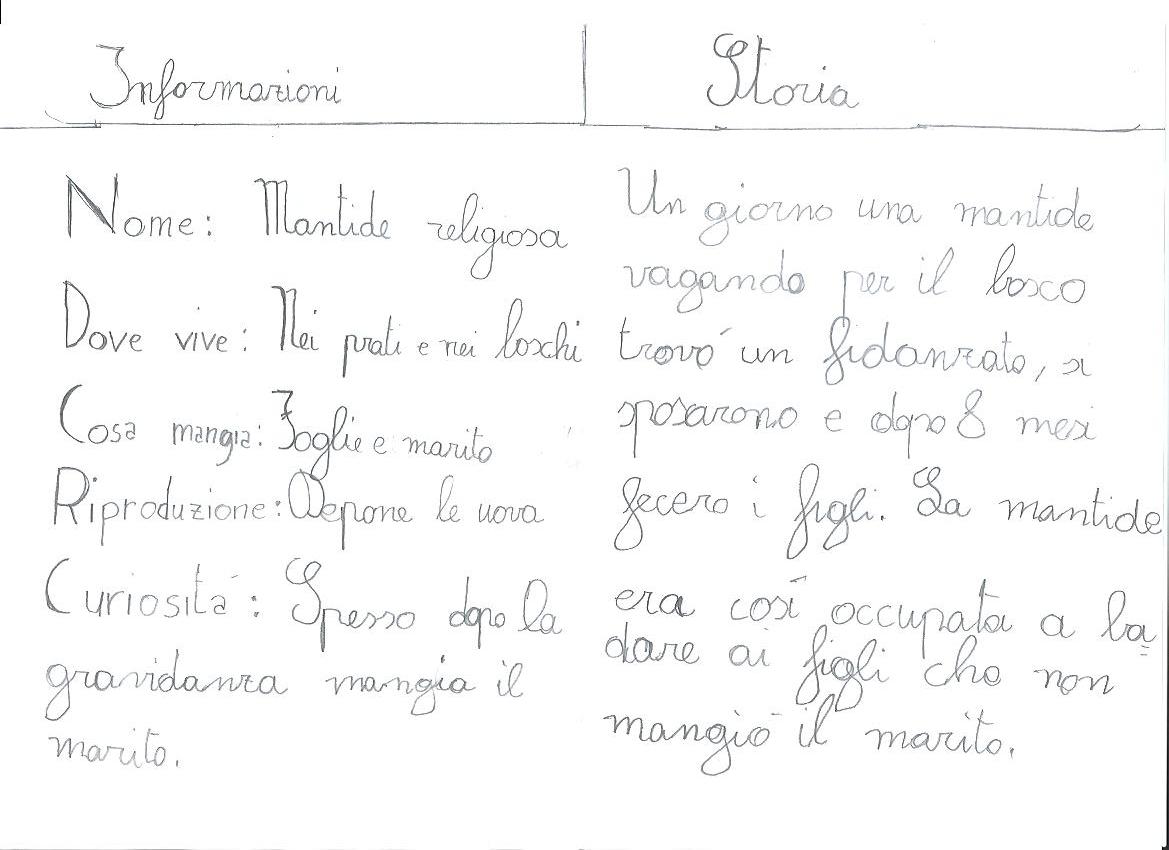 Informazioni
Nome: Mantide religiosa
Dove vive: Nei prati e nei boschi
Cosa mangia: Foglie e marito
Riproduzione: Depone le uova
Curiosità: Spesso dopo la
gravidanza mangia il
marito.
Storia
Un giorno una mantide
vagando per il bosco
trovò un fidanzato, si
sposarono e dopo 8 mesi
fecero i figli. La mantide
era così occupata a ba
dare ai figli che non
mangiò il marito.